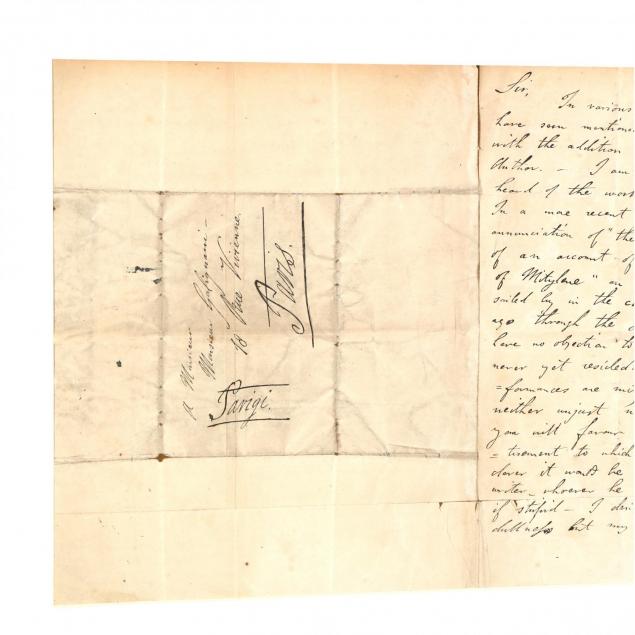 a Monsieur
Monsieur Galignani—
18 Rue Vivienne.
Paris.
Parigi.
Sir,
In various
have seen mention
with the addition
Author. — I am
head of the wor
In a more recent
annunciation of "the
of an account of
of Mitylene" an
smiled by in the co
ago through the
have no objection to
never yet resided
=formances are mi
neither unjust n
you will favour
=tisement to which
clever it would be
writer— whoever he
if stupid — I des
dullness but my